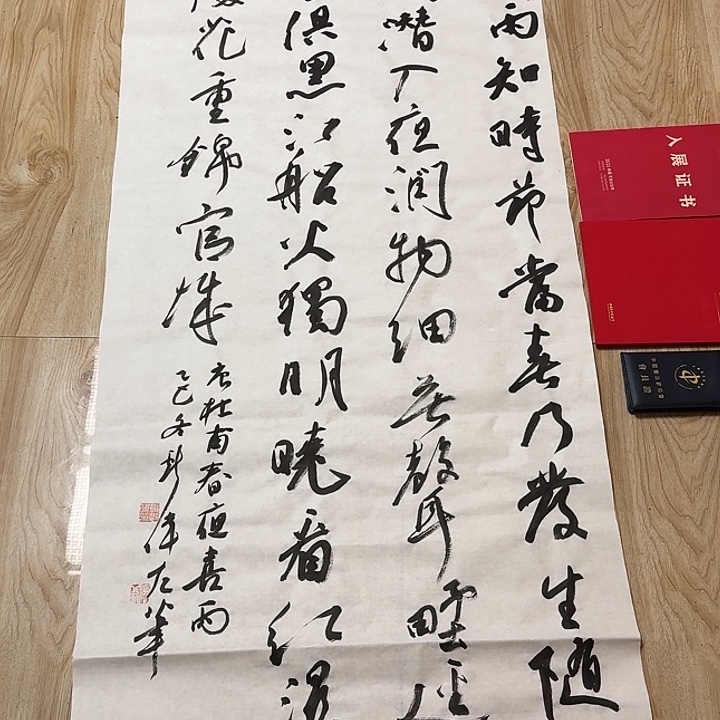 雨知時節當春乃發生隨
潛入夜潤物細無聲野徑
俱黑江船火獨明曉看紅濕
處花重錦官城
唐杜甫春夜喜雨
乙巳冬偉左筆
入展证书
会員證